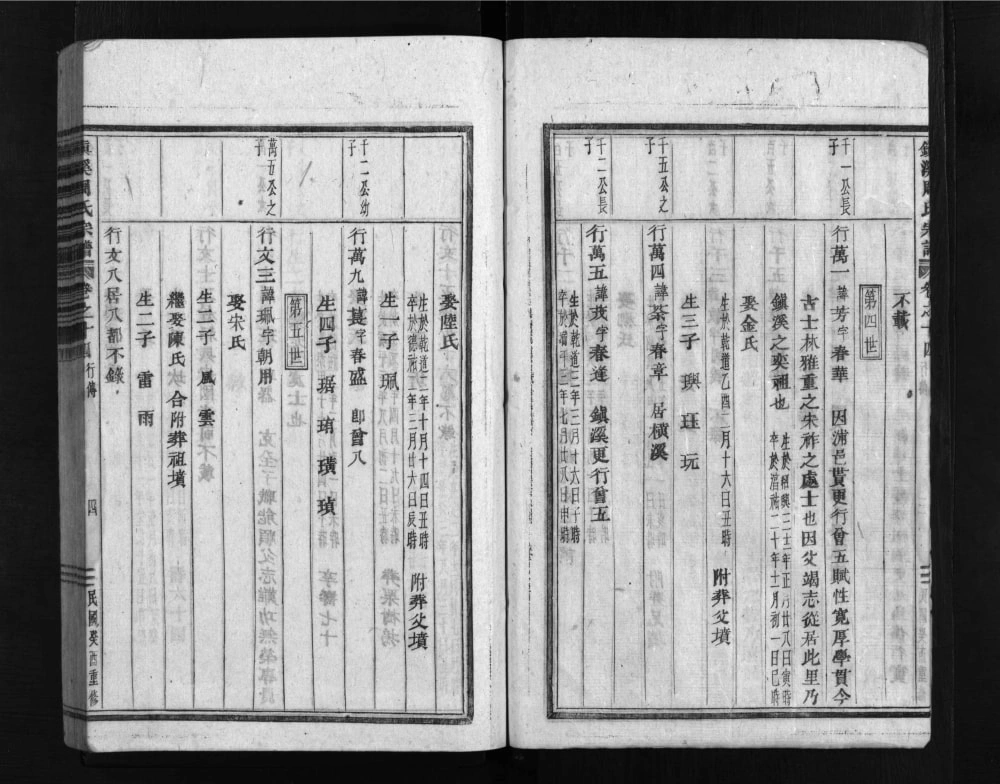 不載
第四世
千一公長子
行萬一諱芳字春華 因浦邑黃更行曾五賦性寬厚學貫今
古士林雅重之宋祚之處士也因父竭志從居此里乃
鎮溪之奕祖也
娶金氏
生於乾道乙酉二月十六日丑時
附葬父墳
生三子 璵 珏 玩
千五公之子
行萬四諱荼字春章 居橫溪
千二公長子
行萬五諱茂字春達 鎮溪更行曾五
生於乾道二年三月廿六日子時
卒於端平三年七月廿八日申時
娶陸氏
生於乾道三年十月十四日丑時
卒於德祐二年三月廿六日辰時
附葬父墳
生一子 珮
千二公幼子
行萬九諱葚字春盛 即曾八
生四子 琚 琄 璜 瑱
第五世
萬五公之子
行文三諱珮字朝用
娶宋氏
生二子 風 雲
繼娶陳氏 合附葬祖墳
生二子 雷 雨
行文八居八都不錄
鎮溪周氏宗譜 卷之十四 行傳
四
民國癸酉重修